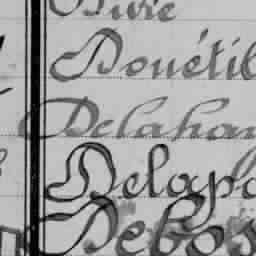 Douétil
Delahau
Delapo
Debos